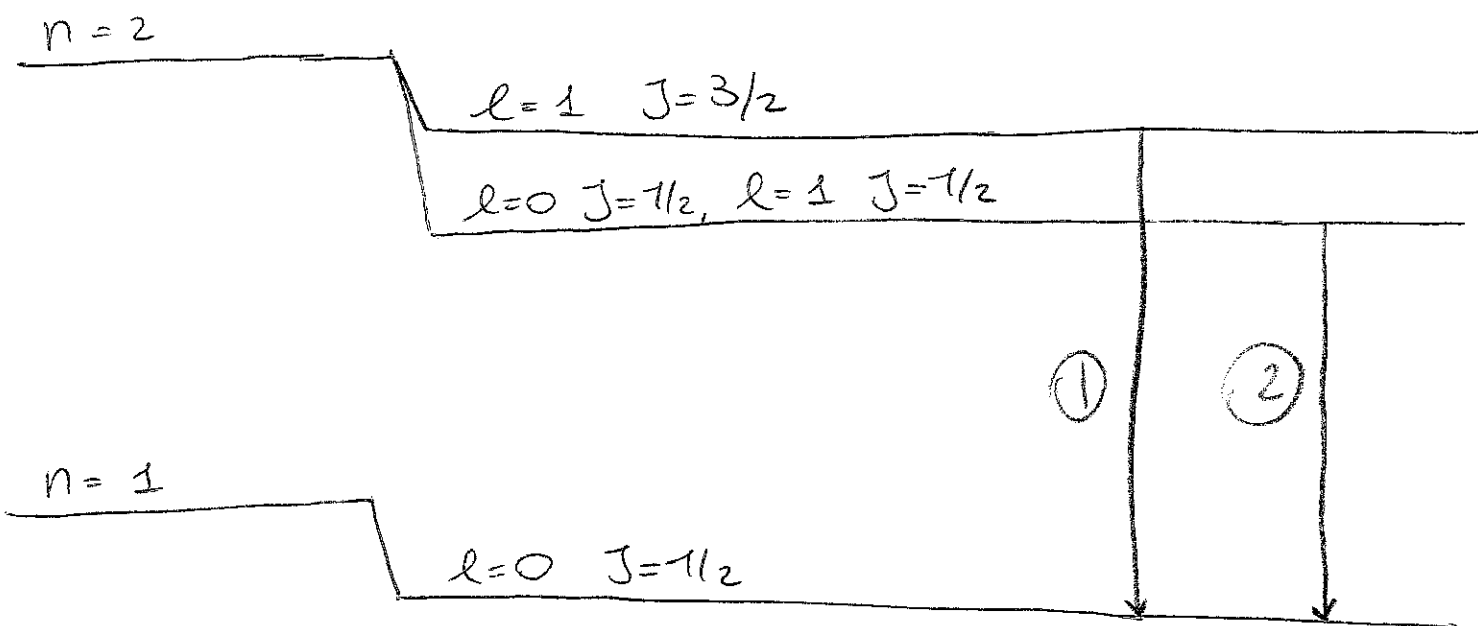 n = 2
l = 1 J = 3/2
l=0 J=1/2, l=1 J=1/2
1 2
n = 1
l=0 J=1/2